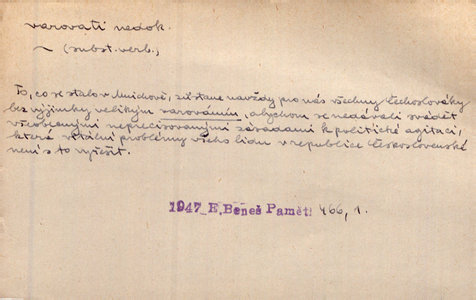 varovati nedok.
~ (subst. verb.)
To, co se stalo v Mnichově, zůstane navždy pro nás všechny Čechoslováky
bez výjimky velikým varováním, abychom se nedávali svádět
všeobecnými neprecisovanými zásadami k politické agitaci,
která vitální problémy všeho lidu v republice Československé
není s to vyřešit.
1947 E. Beneš Paměti 466, 1.